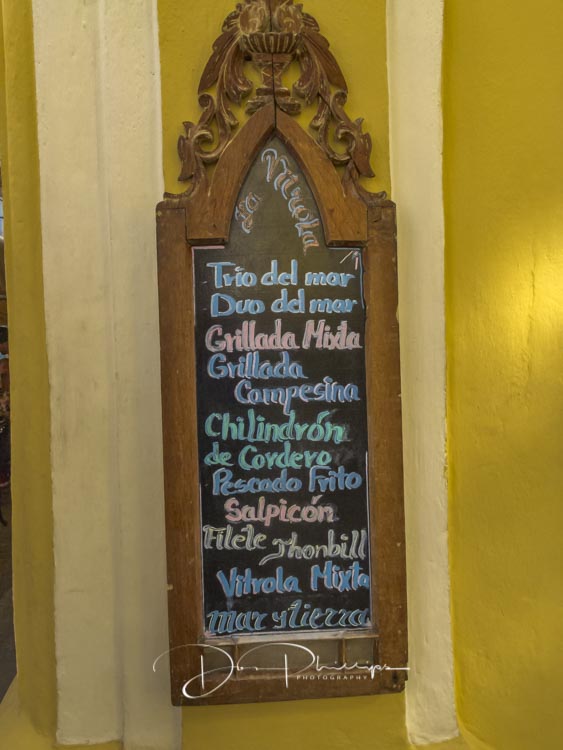 La Vitrola
Trio del mar
Duo del mar
Grillada Mixta
Grillada
Campesina
Chilindrón
de Cordero
Pescado Frito
Salpicón
Filete Thonbill
Vitrola Mixta
mar y tierra
Phillips
PHOTOGRAPHY